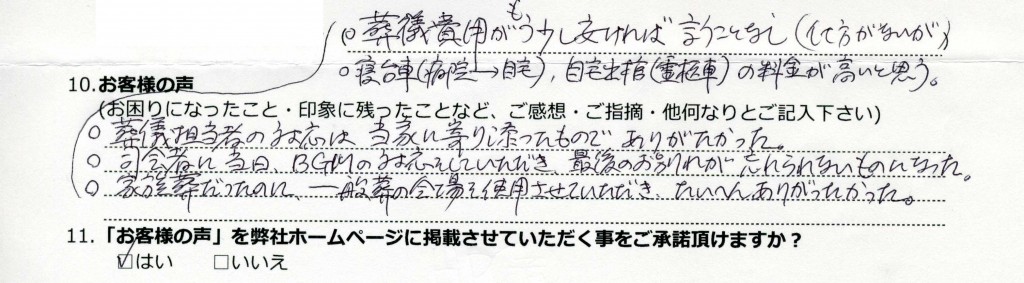 ○ 葬儀費用がもう少し安ければ言うことなし(仕方がないが)
○ 寝台車(病院→自宅), 自宅出棺(霊柩車)の料金が高いと思う。
10.お客様の声
(お困りになったこと・印象に残ったことなど、ご感想・ご指摘・他何なりとご記入下さい)
○ 葬儀担当者の対応は当家に寄り添ったもので ありがたかった。
○ 司会者に当日、BGMの対応をしていただき、最後のお別れが忘れられないものになった。
○ 家族葬だったのに、一般葬の会場を使用させていただき、たいへんありがたかった。
11.「お客様の声」を弊社ホームページに掲載させていただく事をご承諾頂けますか?
☑はい □いいえ